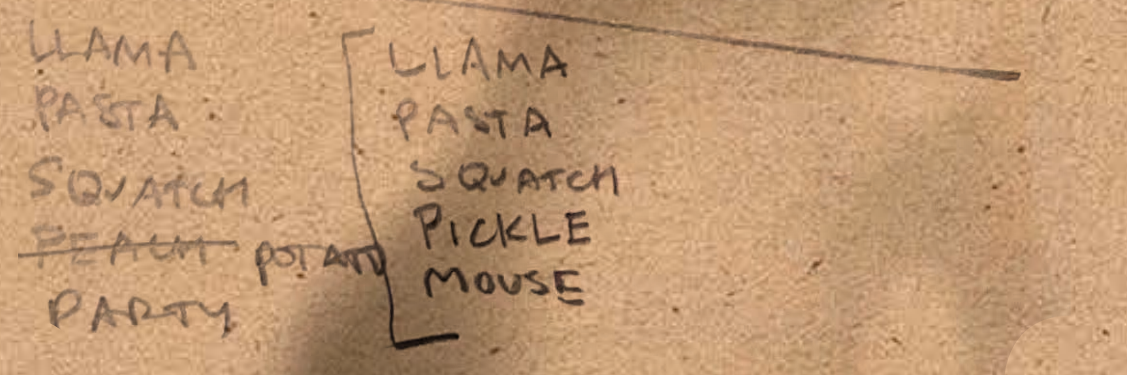 LLAMA
PASTA
SQUATCH
PEACH POTATO
PARTY
LLAMA
PASTA
SQUATCH
PICKLE
MOUSE